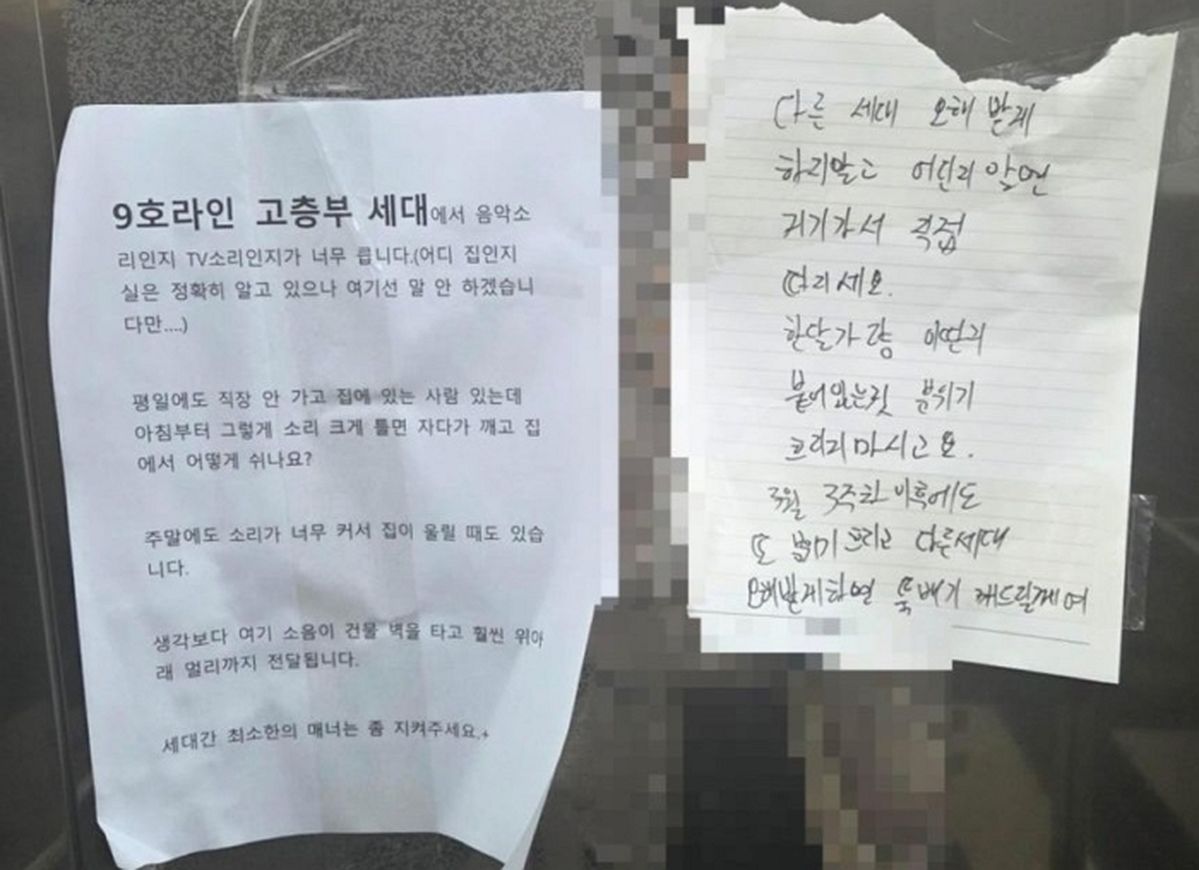 9호라인 고층부 세대에서 음악소
리인지 TV소리인지가 너무 큽니다.(어디 집인지
실은 정확히 알고 있으나 여기선 말 안 하겠습니
다만....)
평일에도 직장 안 가고 집에 있는 사람 있는데
아침부터 그렇게 소리 크게 틀면 자다가 깨고 집
에서 어떻게 쉬나요?
주말에도 소리가 너무 커서 집이 울릴 때도 있습
니다.
생각보다 여기 소음이 건물 벽을 타고 훨씬 위아
래 멀리까지 전달됩니다.
세대간 최소한의 매너는 좀 지켜주세요.
다른 세대 오해 받게
하지말고 어딘지 알면
거기가서 직접
따지세요.
한달가량 이딴거
붙여있는것 분위기
흐리지마시고요.
3월 3주차 이후에도
또 분위기 흐리고 다른세대
오해받게하면 뚝배기 깨드릴께여